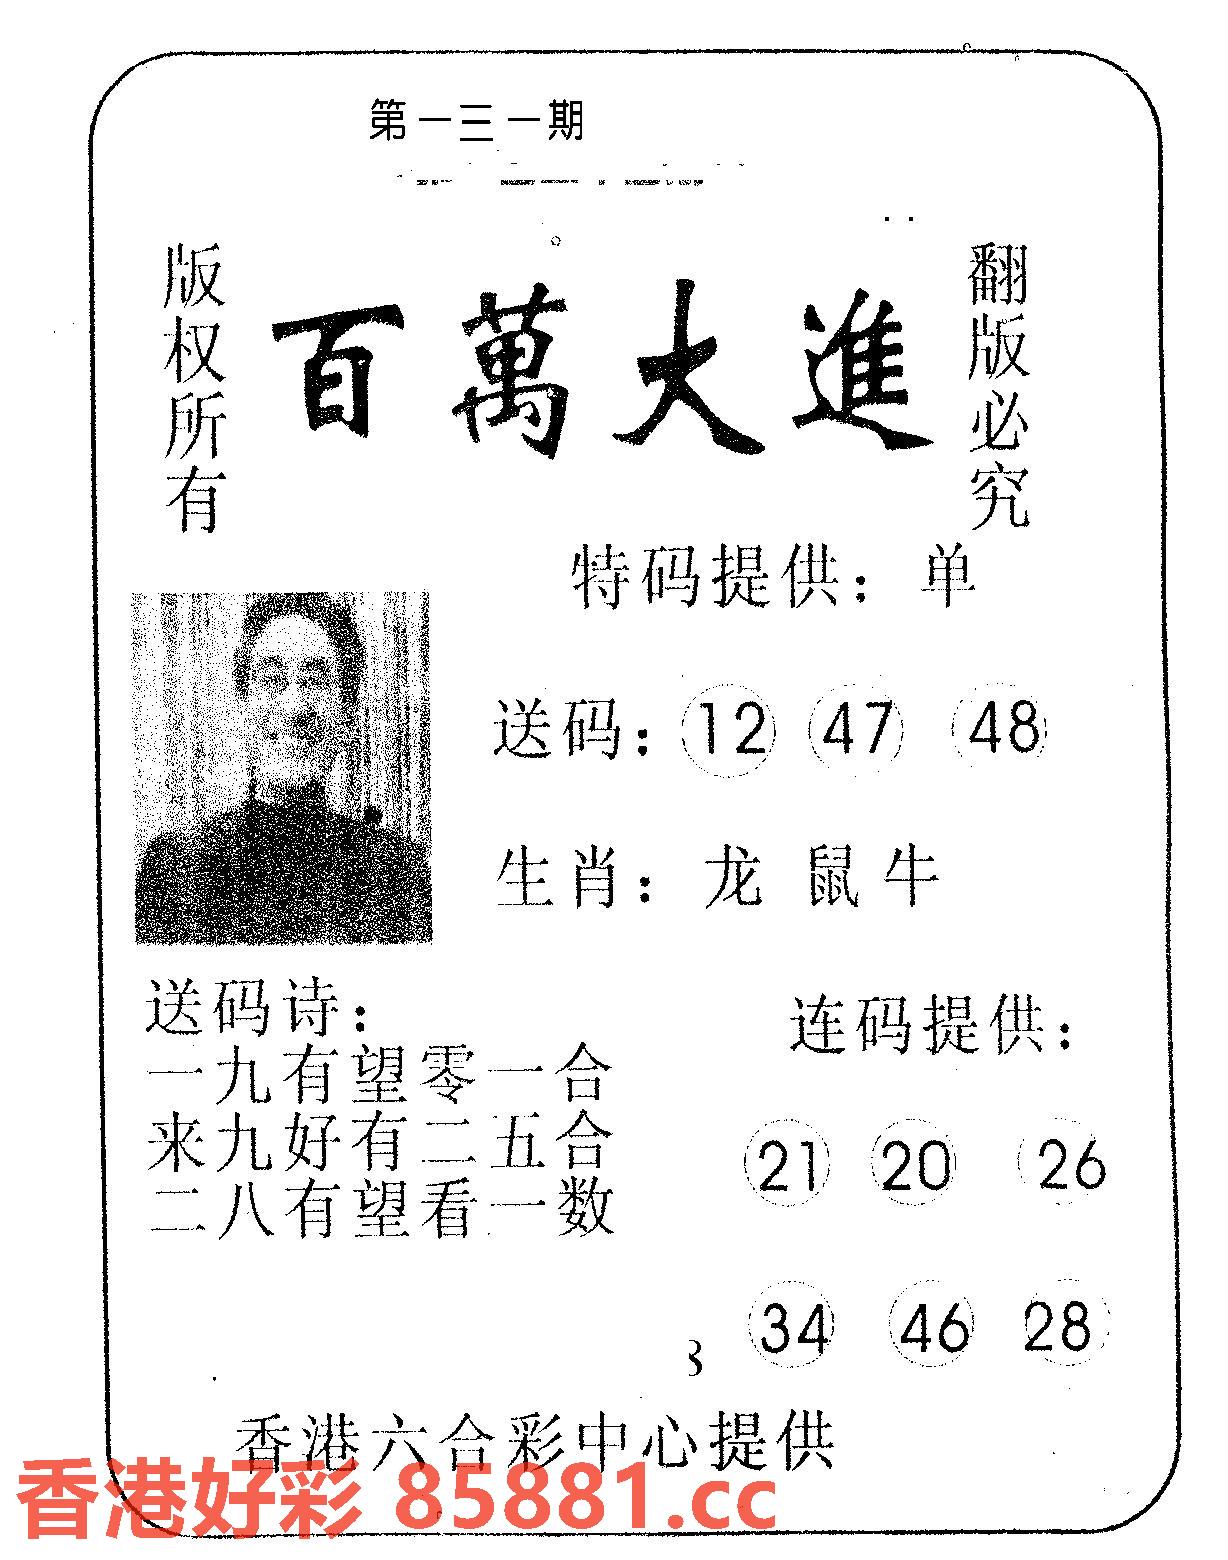 第一三一期
版权所有
百萬大進
翻版必究
特码提供：单
送码：12 47 48
生肖：龙 鼠 牛
送码诗：
一九有望零一合
来九好有二五合
二八有望看一数
连码提供：
21 20 26
34 46 28
香港六合彩中心提供
香港好彩 85881.cc